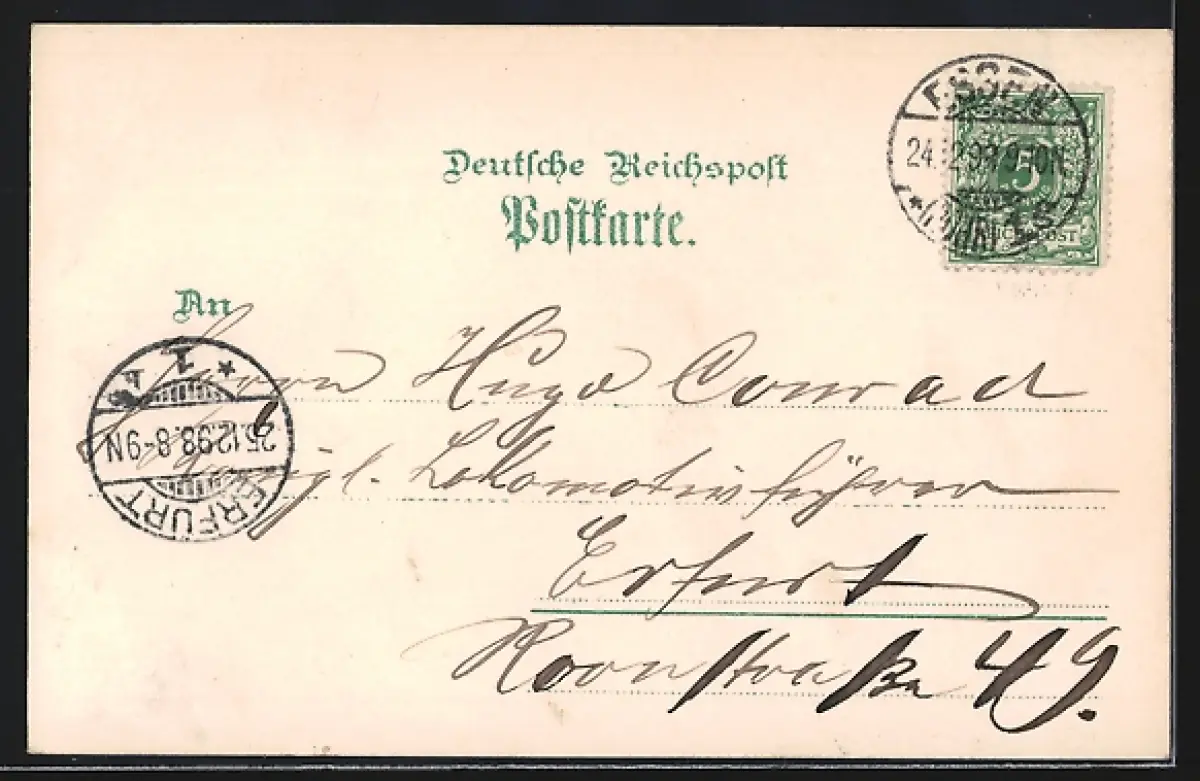 Deutsche Reichspost
Postkarte.
ESSEN
24.12.98 9-10N
*(RUHR) 1 S
5
REICHSPOST
An
Herrn Hugo Conrad
Königl. Lokomotivführer
Erfurt
Roonstraße 49.
ERFURT
25.12.98. 8-9N
* 1